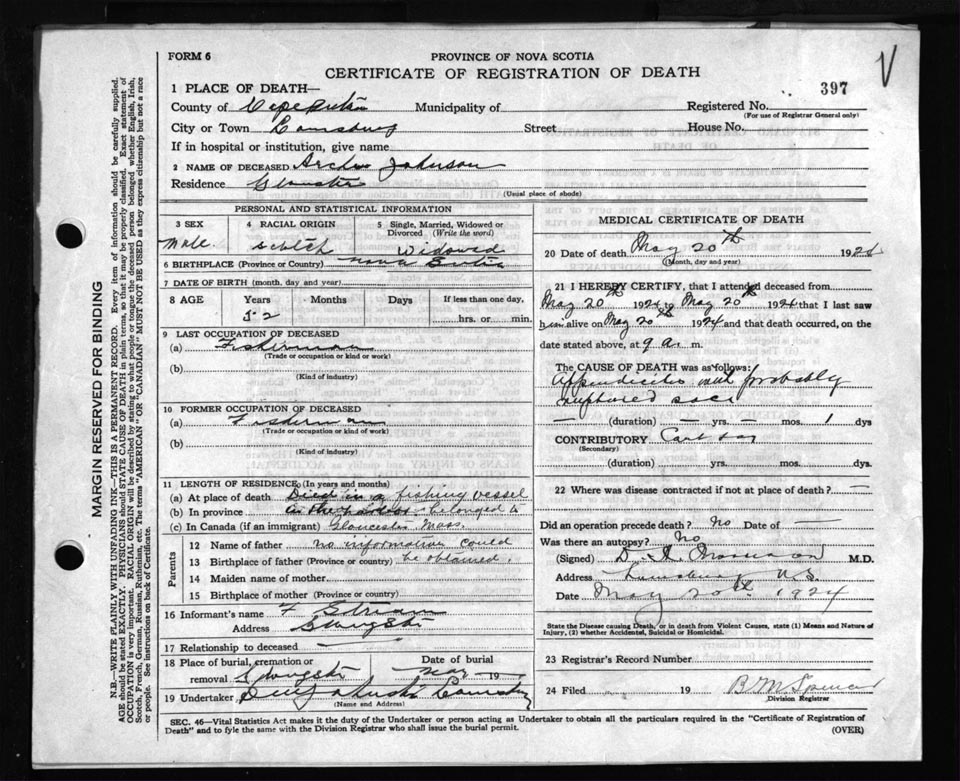 FORM 6
PROVINCE OF NOVA SCOTIA
CERTIFICATE OF REGISTRATION OF DEATH
V
397
1 PLACE OF DEATH—
County of Cape Breton Municipality of Registered No.
(For use of Registrar General only)
City or Town Street House No.
If in hospital or institution, give name
2 NAME OF DECEASED Johnson
Residence
(Usual place of abode)
PERSONAL AND STATISTICAL INFORMATION
3 SEX 4 RACIAL ORIGIN 5 Single, Married, Widowed or Divorced (Write the word)
Male. Scotch Widowed
6 BIRTHPLACE (Province or Country) Nova Scotia
7 DATE OF BIRTH (month, day and year)
8 AGE Years Months Days If less than one day,
52 hrs. or min.
9 LAST OCCUPATION OF DECEASED
(a) Fisherman
(Trade or occupation or kind or work)
(b)
(Kind of industry)
10 FORMER OCCUPATION OF DECEASED
(a) Fisherman
(Trade or occupation or kind of work)
(b)
(Kind of industry)
11 LENGTH OF RESIDENCE (In years and months)
(a) At place of death Died in a fishing vessel
(b) In province belonged to
(c) In Canada (if an immigrant) Gloucester Mass.
Parents
12 Name of father no information could
13 Birthplace of father (Province or country) be obtained.
14 Maiden name of mother
15 Birthplace of mother (Province or Country)
16 Informant's name F
Address
17 Relationship to deceased
18 Place of burial, cremation or removal Date of burial
19
19 Undertaker
(Name and Address)
MEDICAL CERTIFICATE OF DEATH
20 Date of death May 20th 1924
(Month, day and year)
21 I HEREBY CERTIFY, that I attended deceased from
May 20th 1924 to May 20th 1924 that I last saw
him alive on May 20th 1924 and that death occurred, on the
date stated above, at 9 a. m.
The CAUSE OF DEATH was as follows:
Appendicitis with probably
ruptured
— (duration) — yrs. — mos. 1 dys
CONTRIBUTORY
(Secondary)
(duration) yrs. mos. dys.
22 Where was disease contracted if not at place of death? —
Did an operation precede death? No Date of —
Was there an autopsy? No
(Signed) M.D.
Address N.S.
Date May 20th 1924
State the Disease causing Death, or in death from Violent Causes, state (1) Means and Nature of
Injury, (2) whether Accidental, Suicidal or Homicidal.
23 Registrar's Record Number
24 Filed 19 B M Spencer
Division Registrar
SEC. 46—Vital Statistics Act makes it the duty of the Undertaker or person acting as Undertaker to obtain all the particulars required in the "Certificate of Registration of
Death" and to fyle the same with the Division Registrar who shall issue the burial permit.
(OVER)
MARGIN RESERVED FOR BINDING
N.B.—WRITE PLAINLY WITH UNFADING INK—THIS IS A PERMANENT RECORD. Every item of information should be carefully supplied.
AGE should be stated EXACTLY. PHYSICIANS should STATE CAUSE OF DEATH in plain terms, so that it may be properly classified. Exact statement of
OCCUPATION is very important. RACIAL ORIGIN will be described by stating to what people or tongue the deceased person belonged whether English, Irish,
Scotch, French, German, Russian, Ruthenian, etc. The terms "AMERICAN" OR "CANADIAN" MUST NOT BE USED as they express citizenship but not a race
or people. See instructions on back of Certificate.